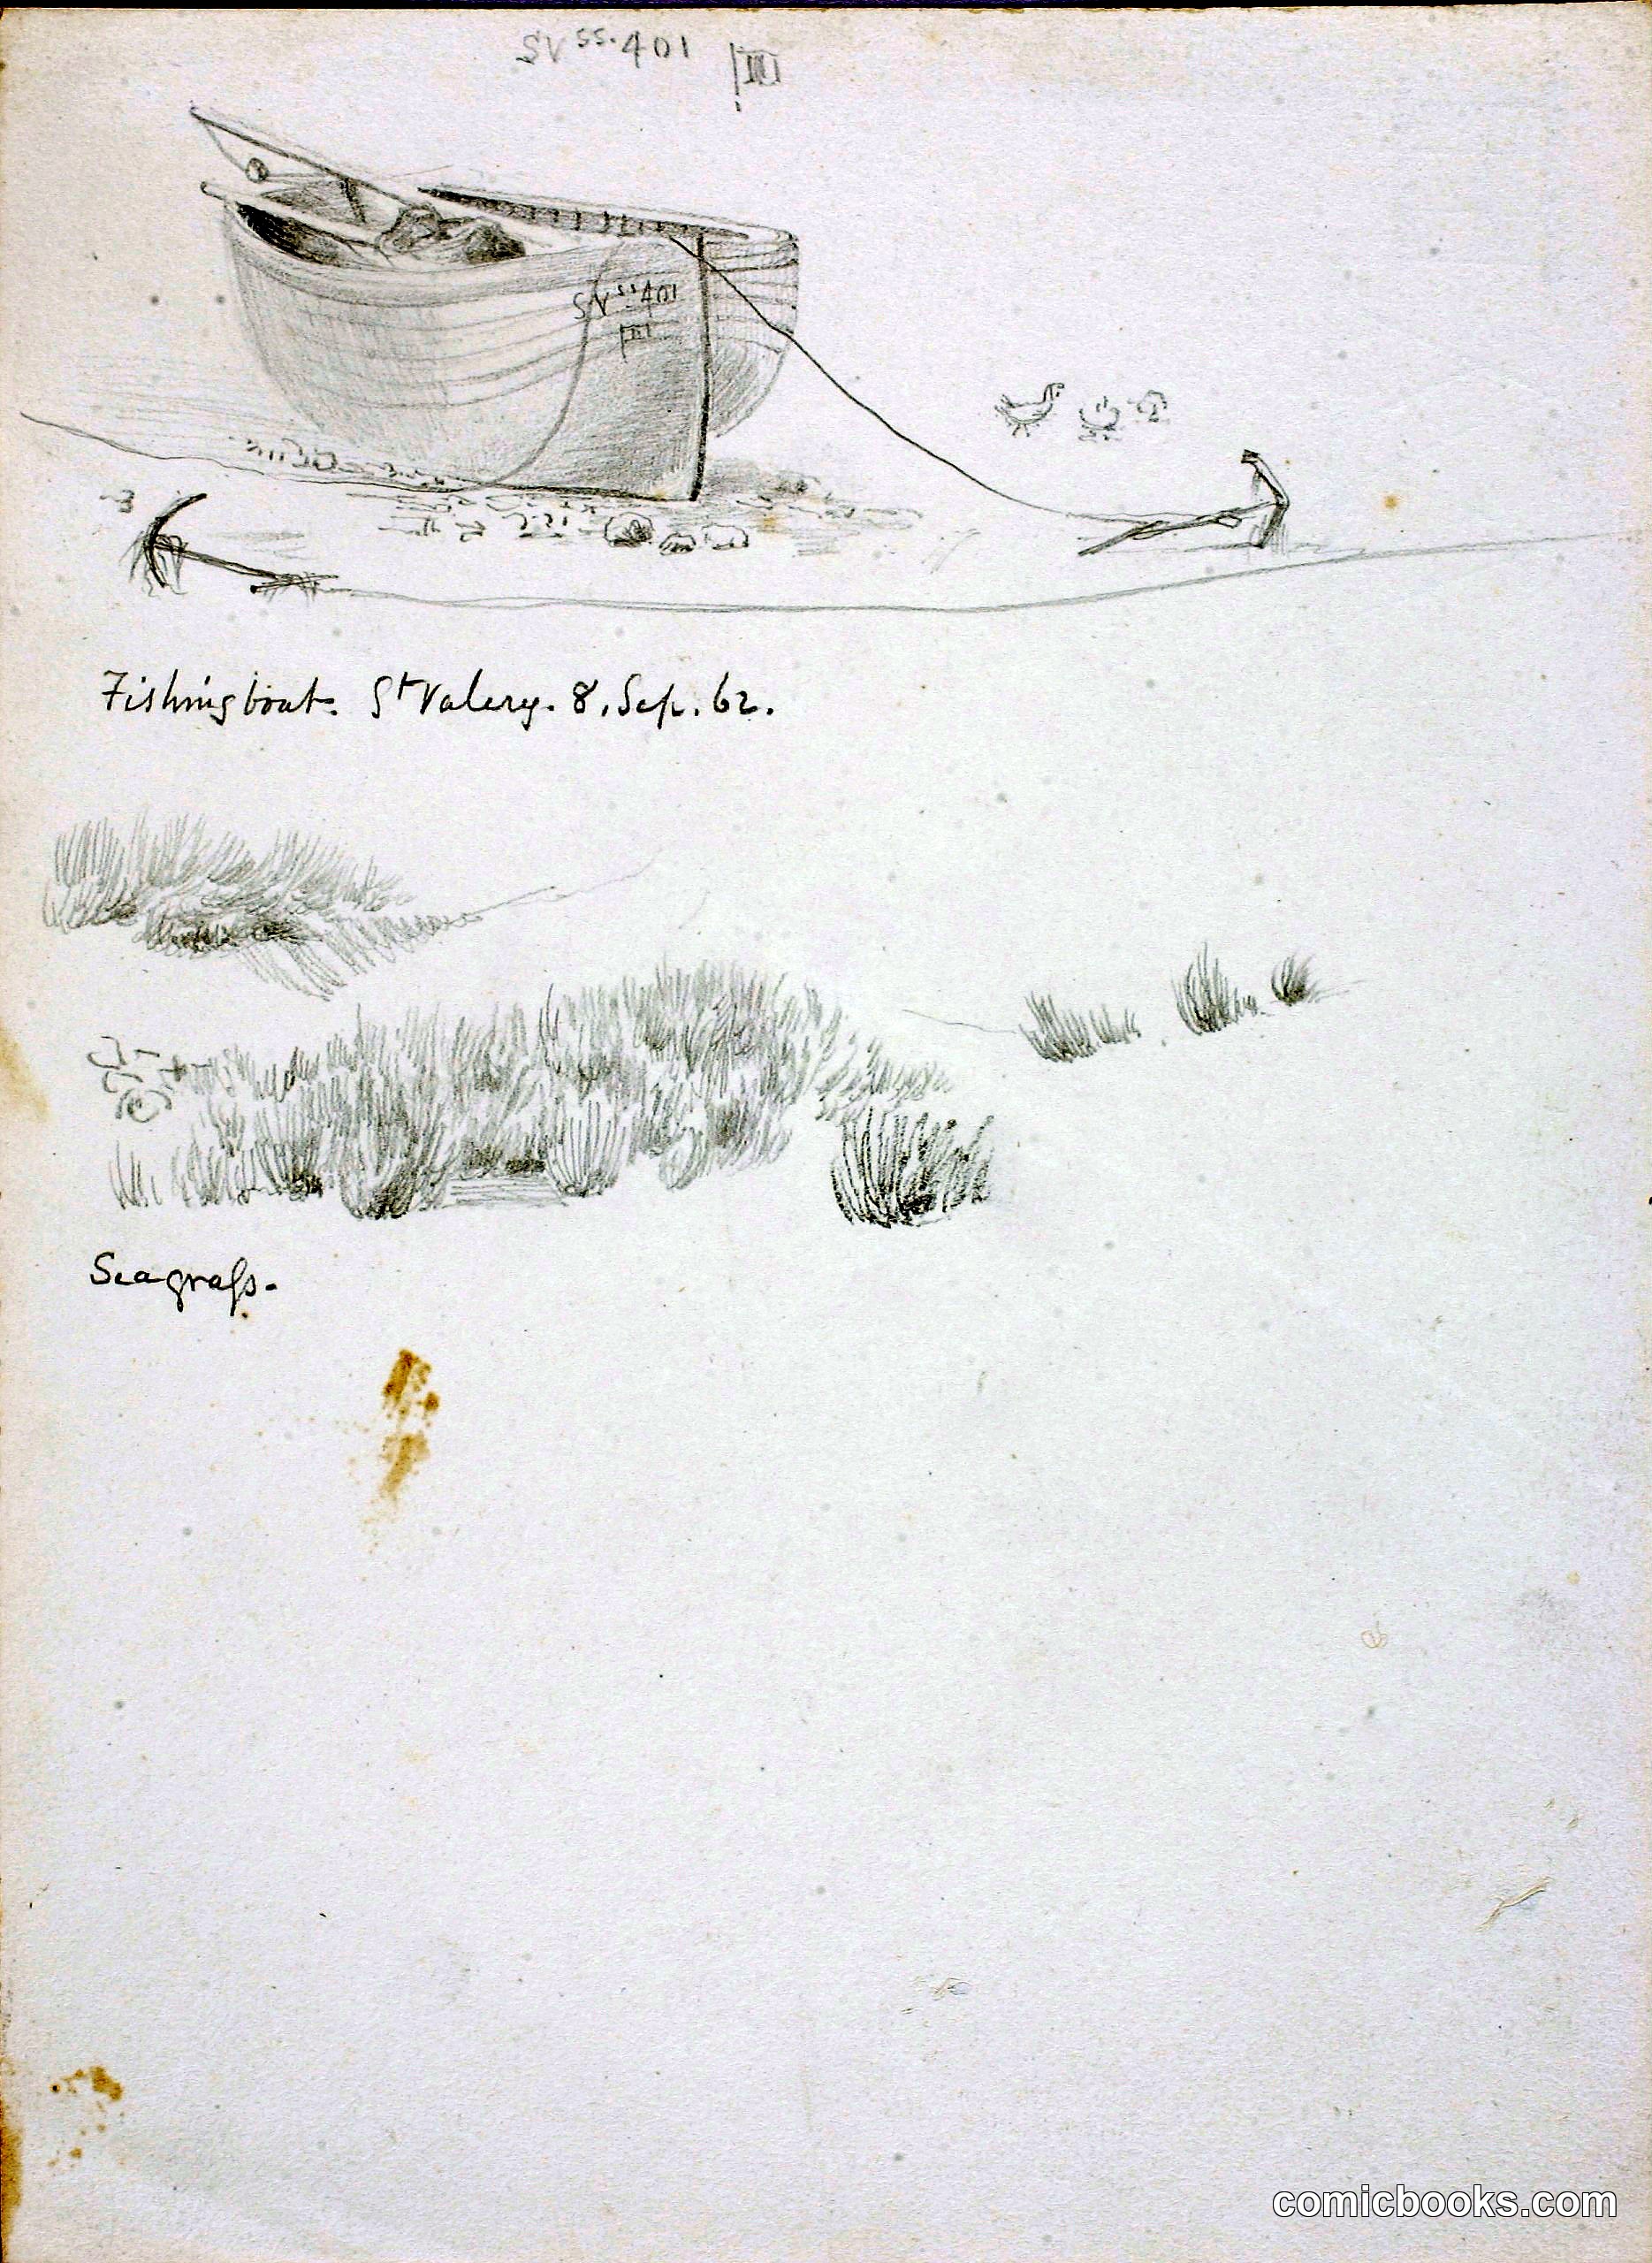 SV ss. 401 III
SV ss. 401
III
Fishingboat. St Valery. 8. Sep. 62.
Seagraſs.
comicbooks.com